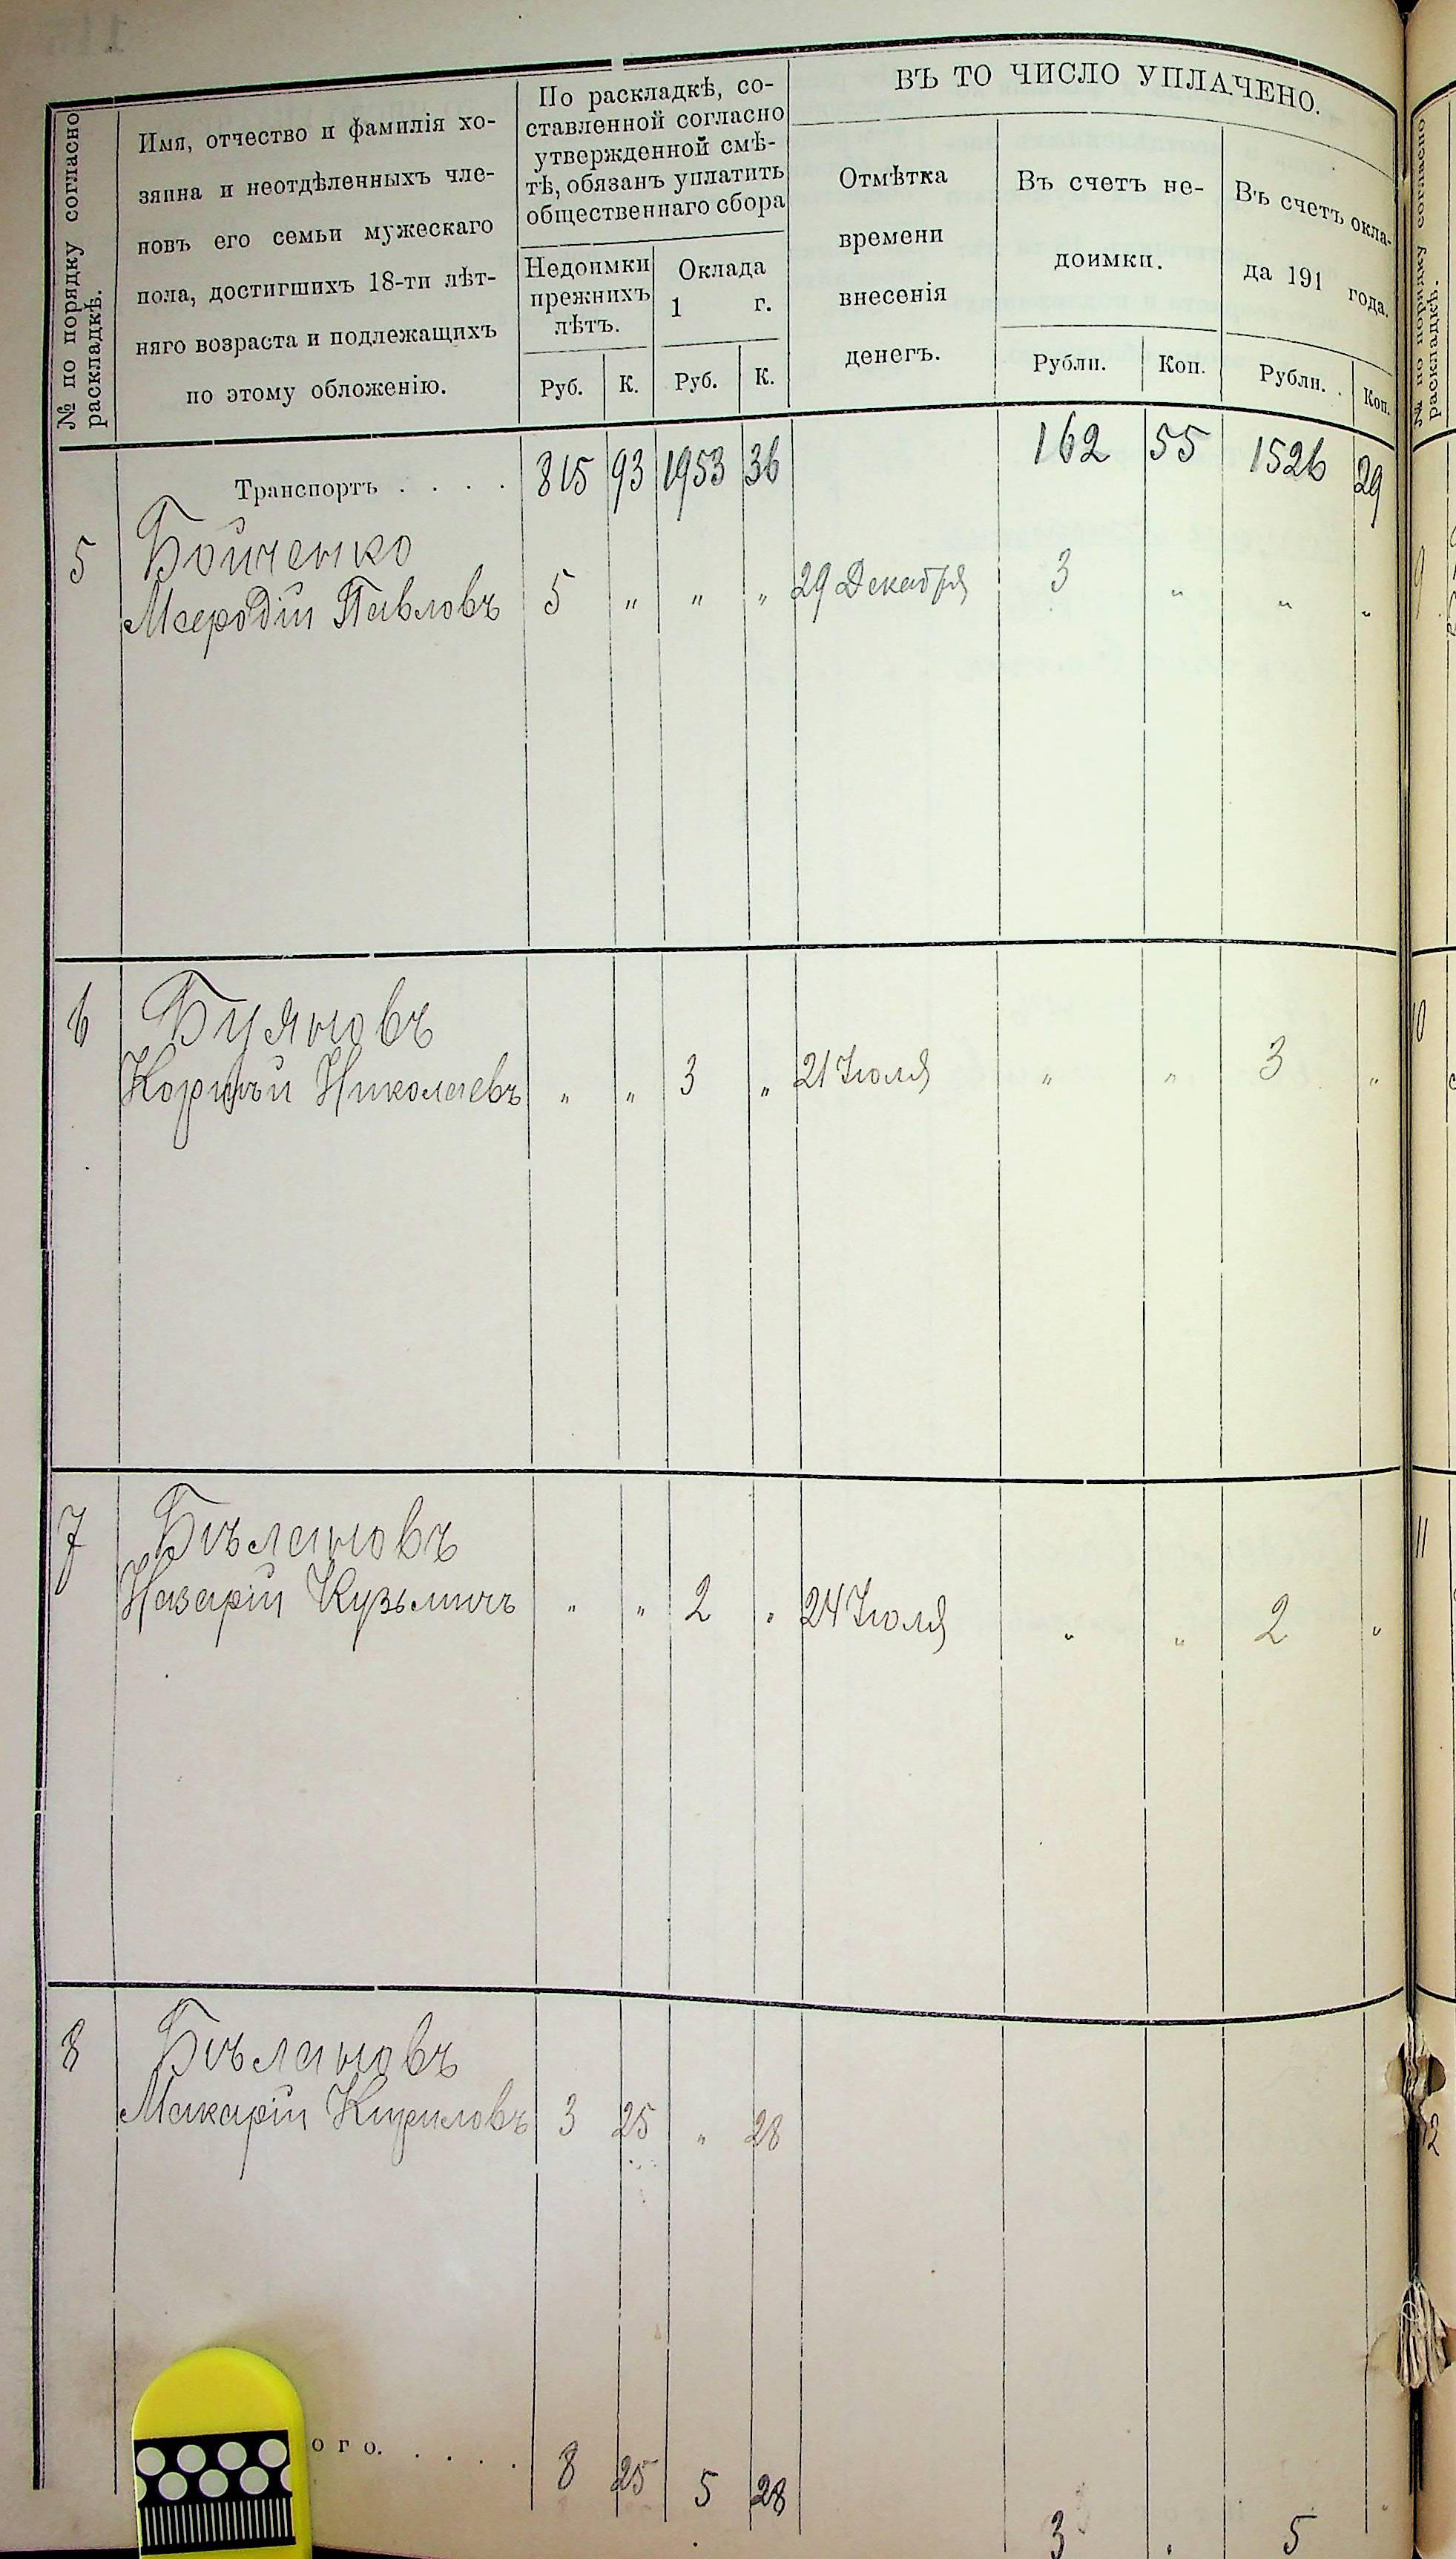 № по порядку согласно
раскладкѣ.
Имя, отчество и фамилія хо-
зяина и неотдѣленныхъ чле-
новъ его семьи мужескаго
пола, достигшихъ 18-ти лѣт-
няго возраста и подлежащихъ
по этому обложенію.
По раскладкѣ, со-
ставленной согласно
утвержденной смѣ-
тѣ, обязанъ уплатить
общественнаго сбора
Недоимки
прежнихъ
лѣтъ.
Оклада
1 г.
Руб. К. Руб. К.
ВЪ ТО ЧИСЛО УПЛАЧЕНО.
Отмѣтка
времени
внесенія
денегъ.
Въ счетъ не-
доимки.
Рубли. Коп.
Въ счетъ окла-
да 191 года.
Рубли. Коп.
Транспортъ . . . . 815 93 1953 36 162 55 1526 29
5 Бойченко
Павловъ 5 " " " 29 Декабря 3 " " "
6 Буяновъ
Корнѣй Николаевъ " " 3 " 21 Іюля " " 3 "
7 Бѣлановъ
Назарій Кузьмичъ " " 2 " 24 Іюля " " 2 "
8 Бѣлановъ
Макарій Кириловъ 3 25 " 28
ого. . . . . 8 25 5 28 3 . 5
№ по порядку согласно
раскладкѣ.
9
10
11
12